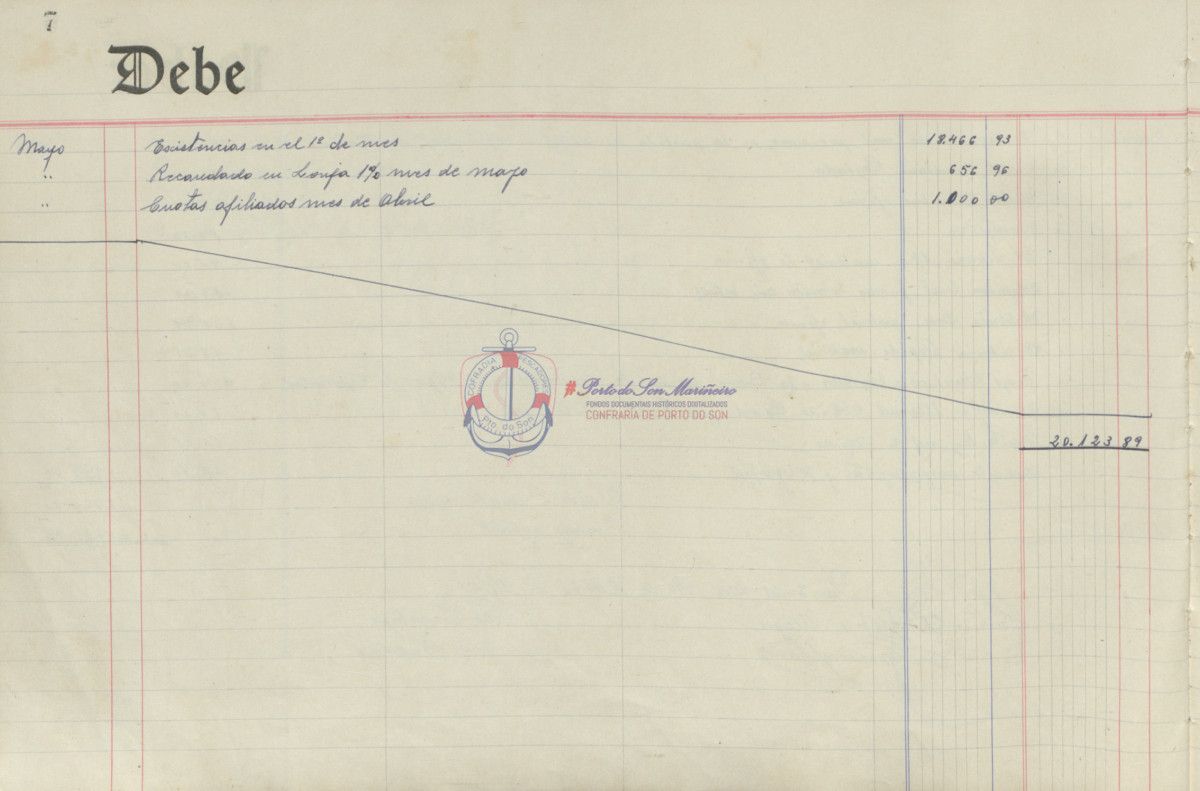 7
Debe
Mayo Existencias en el 1º de mes 18.466 93
" Recaudado en Lonja 1% mes de mayo 656 96
" Cuotas afiliados mes de Abril 1.000 00
20.123 89
COFRADIA PESCADORES
Pto. do Son
#Porto do Son Mariñeiro
FONDOS DOCUMENTAIS HISTÓRICOS DIXITALIZADOS
CONFRARÍA DE PORTO DO SON